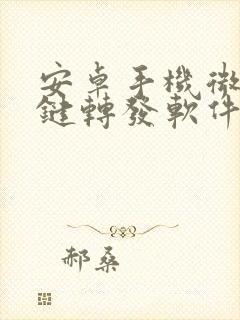 安卓手機微
鍵轉發軟件
郝桑